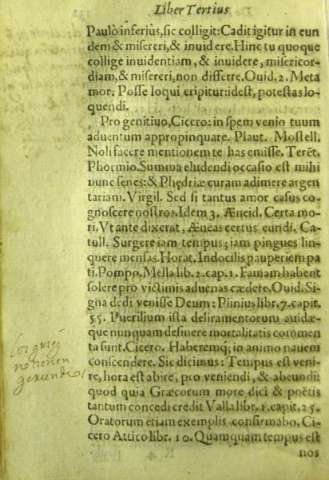 Liber Tertius
Paulò inferius, sic colligit: Cadit igitur in eun
dem & misereri, & inuidere. Hinc tu quoque
collige inuidentiam, & inuidere, misericor-
diam, & misereri, non differre. Ouid. 2. Meta
mor. Posse loqui eripitur: idest, potestas lo-
quendi.
Pro genitiuo, Cicero: in spem venio tuum
aduentum appropinquare. Plaut. Mostell.
Noli facere mentionem te has emisse. Terēt.
Phormio. Summa eludendi occasio est mihi
nunc senes: & Phędriæ curam adimere argen
tariam. Virgil. Sed si tantus amor casus co-
gnoscere nostros. Idem 3. Æneid. Certa mo-
ri. Vt ante dixerat, Æneas certus eundi. Ca-
tull. Surgere iam tempus; iam pingues lin-
quere mensas. Horat. Indocilis pauperiem pa
ti. Pompo. Mella lib. 2. cap. 2. Famam habent
solere pro victimis aduenas cædere. Ouid. Si-
gna dedi venisse Deum: Plinius libr. 7. capit.
55. Puerilium ista deliramentorum auidæ-
que nunquam desinere mortalitatis commen
ta sunt. Cicero. Haberemq; in animo nauem
conscendere. Sic dicimus: Tempus est veni-
re, hora est abire, pro veniendi, & abeundi:
quod quia Græcorum more dici & poëtis
tantum concedi credit Valla libr. 1. capit. 25.
Oratorum etiam exemplis confirmabo. Ci-
cero Attico libr. 10. Quamquam tempus est
nos